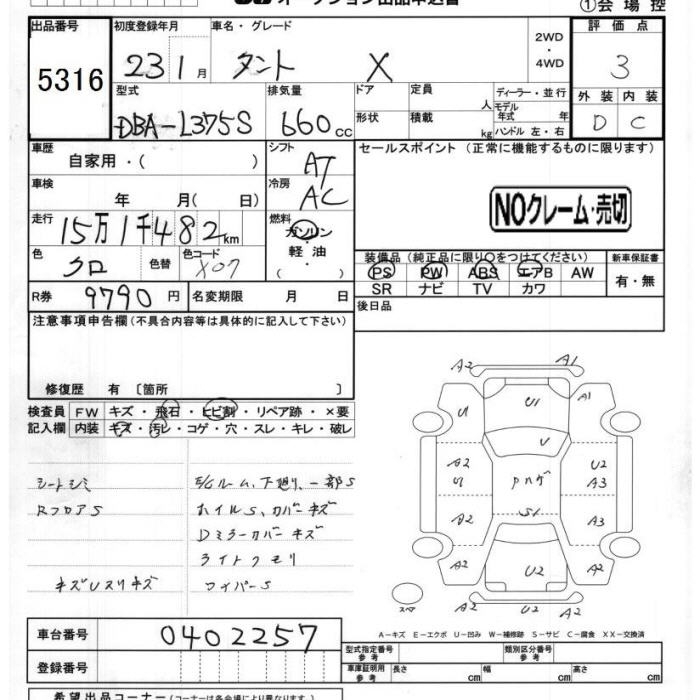 ①会場控
出品番号 初度登録年月 車名・グレード 2WD・4WD 評価点
5316 23 1月 タント X 3
型式 排気量 ドア 定員 人 ディーラー・並行 外装 内装
DBA-L375S 660cc 形状 積載 kg モデル年式 年 ハンドル 左・右 D C
車歴 自家用・( ) シフト AT セールスポイント (正常に機能するものに限ります)
車検 年 月( 日) 冷房 AC
NOクレーム・売切
走行 15万1千482km 燃料 ガソリン・軽油・( )
色 クロ 色替 色コード X07
装備品(純正品に限り○をつけてください) 新車保証書
PS PW ABS エアB AW 有・無
SR ナビ TV カワ
R券 9790円 名変期限 月 日 後日品
注意事項申告欄(不具合内容等は具体的に記入して下さい)
修復歴 有 〔箇所 〕
検査員 FW キズ・飛石・ヒビ割・リペア跡・×要
記入欄 内装 キズ・汚レ・コゲ・穴・スレ・キレ・破レ
シートシミ E/Gルーム、下廻り、一部S
RフロアS ホイルS、カバーキズ
Dミラーカバーキズ
ライトクモリ
キズUスリキズ ワイパーS
A2 A1
U U1 A1
U
A2 U2
U Pハゲ A3
A2 S1 A3
A2 U2 A2
A2 U2
スペア
A-キズ E-エクボ U-凹み W-補修跡 S-サビ C-腐食 XX-交換済
車台番号 0402257
型式指定番号 参考 類別区分番号 参考
登録番号
車庫証明用 参考 長さ cm 幅 cm 高さ cm
希望出品コーナー(コーナーは各会場により異なります)